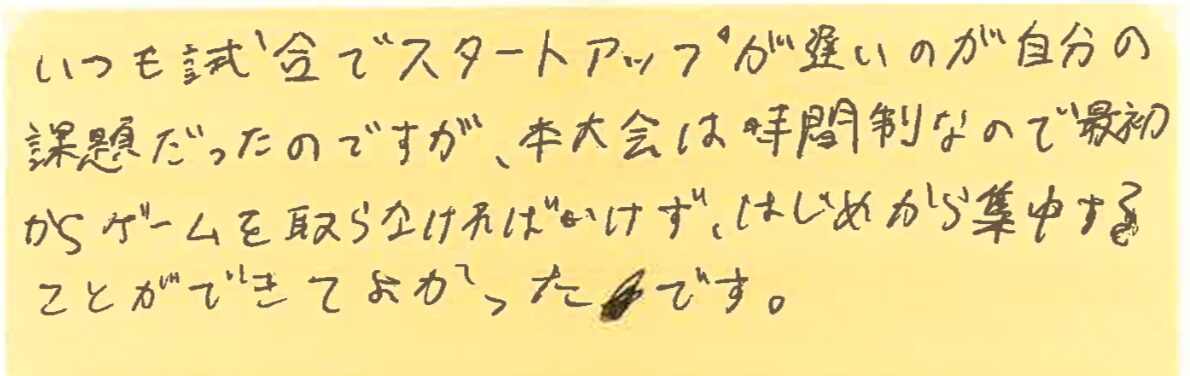 いつも試合でスタートアップが遅いのが自分の
課題だったのですが、本大会は時間制なので最初
からゲームを取らなければいけず、はじめから集中する
ことができてよかったです。